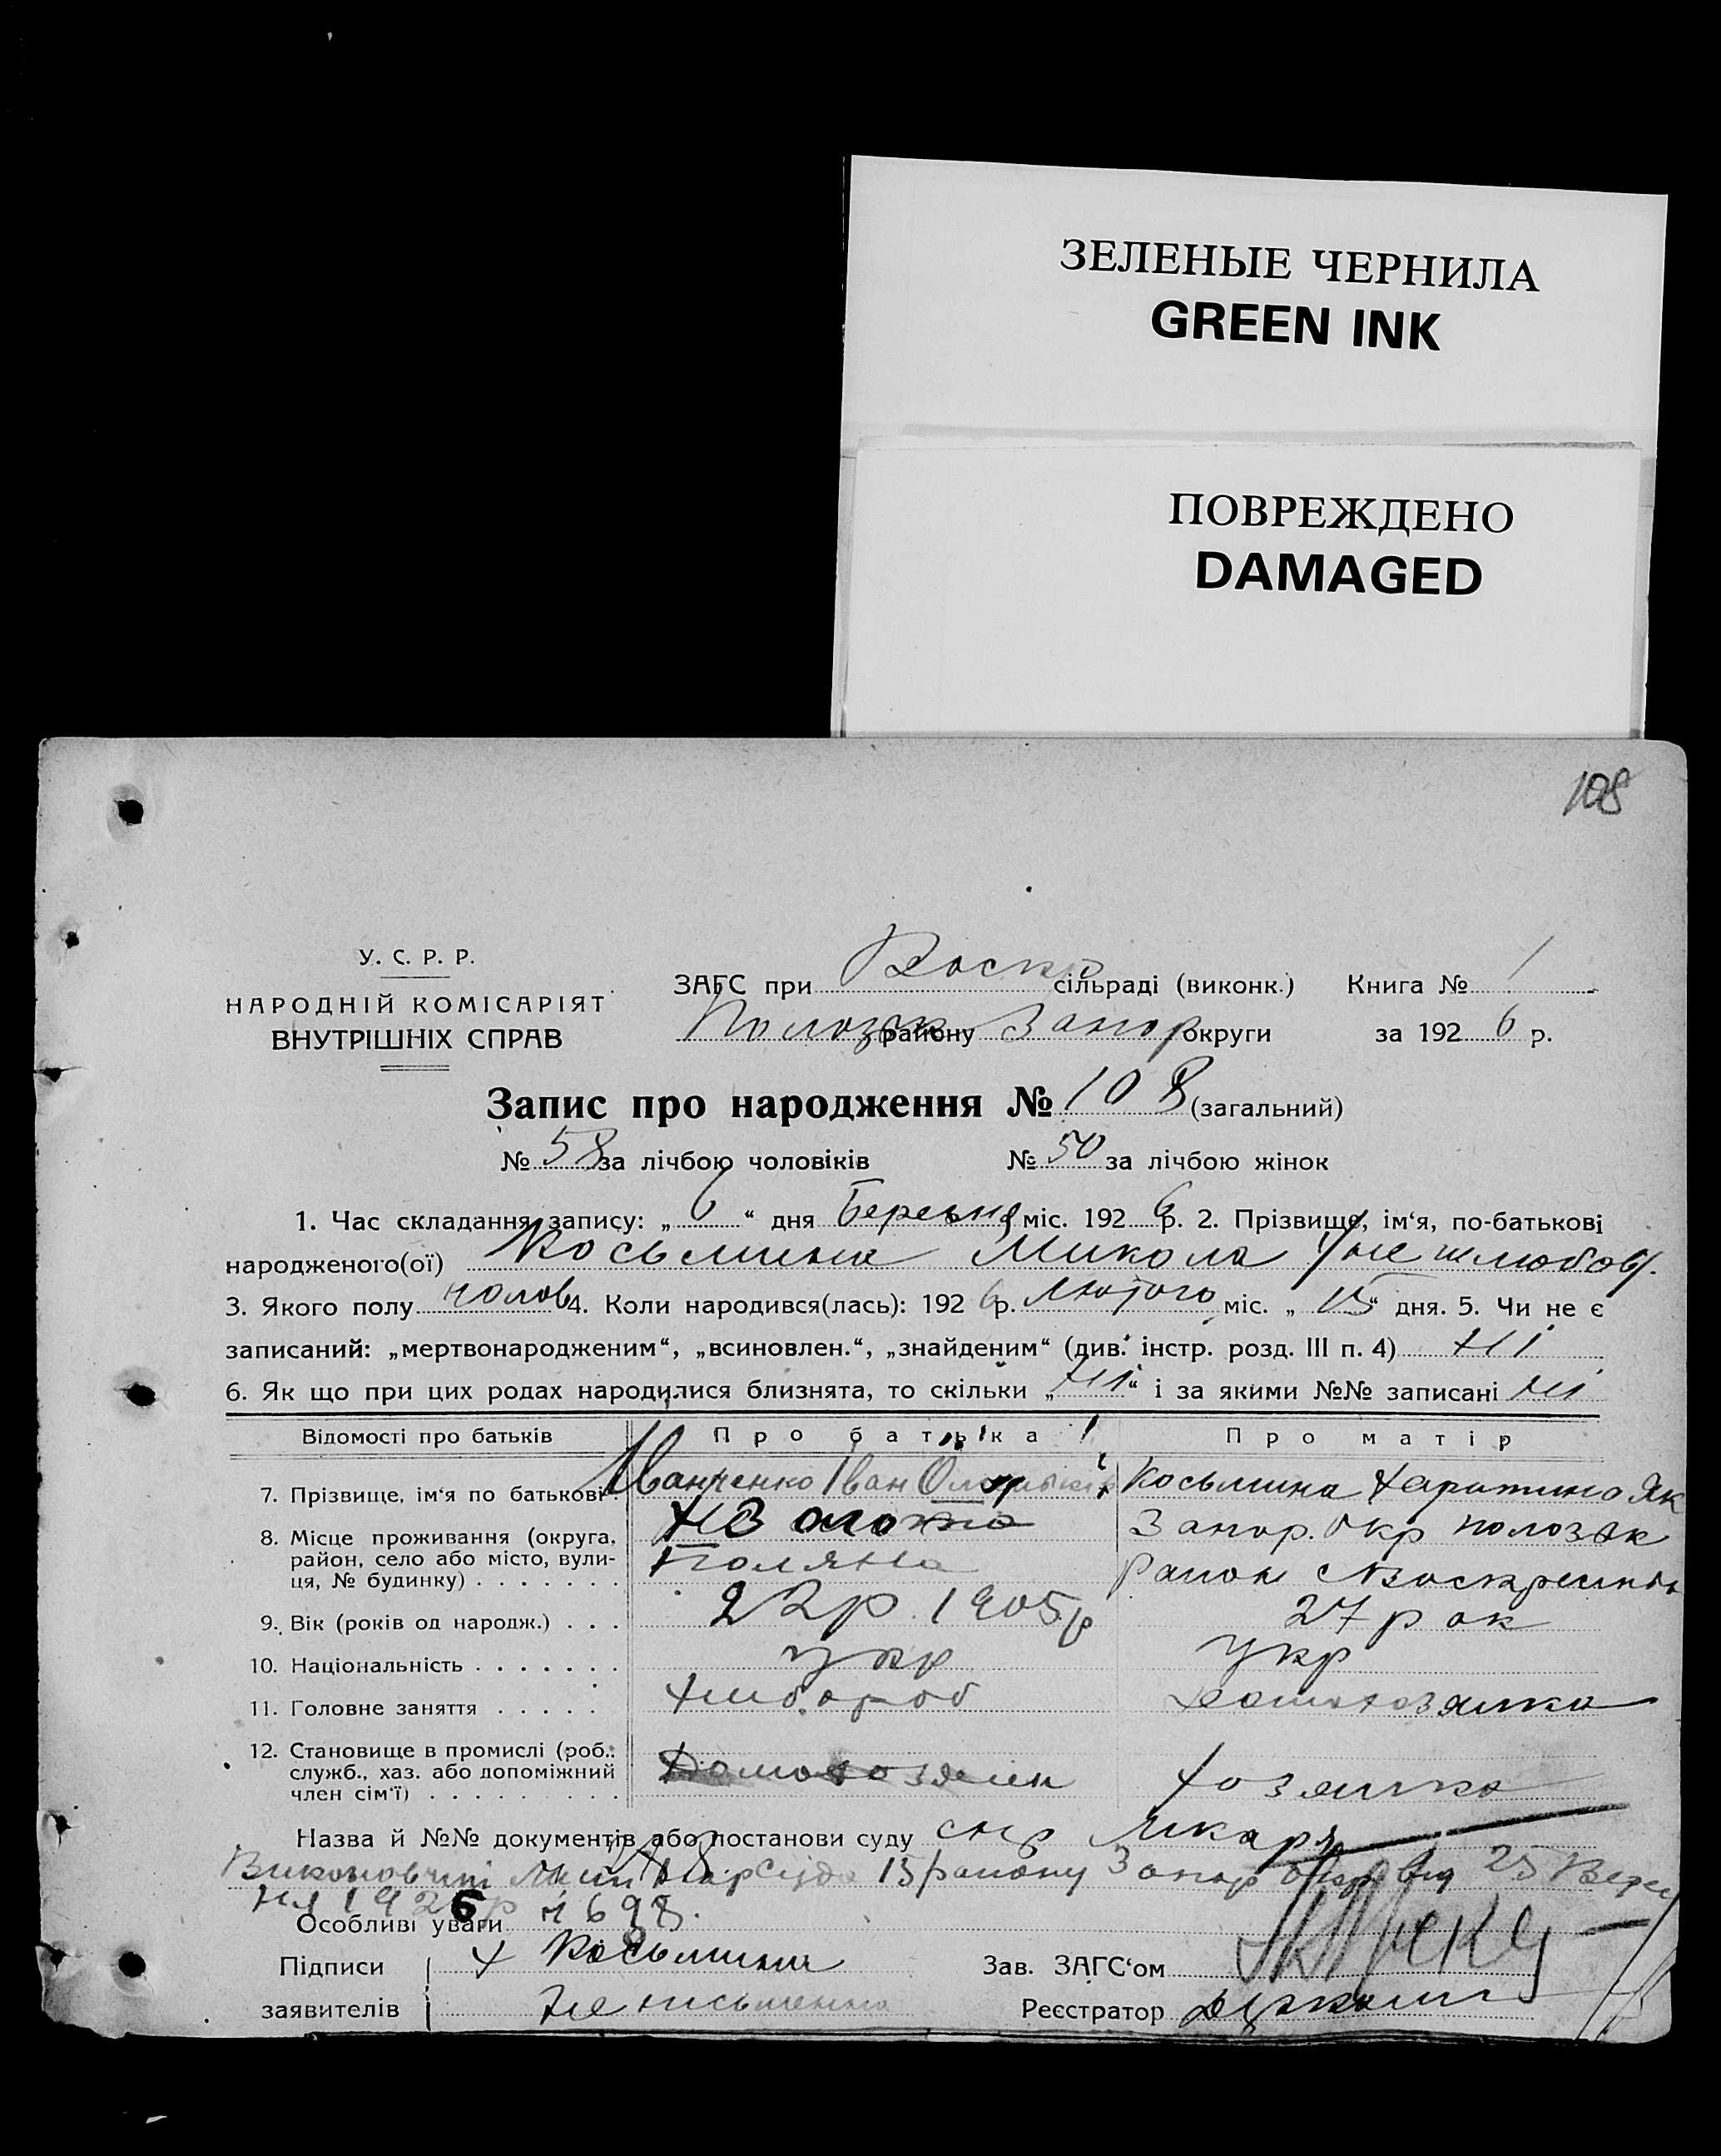 ЗЕЛЕНЫЕ ЧЕРНИЛА
GREEN INK
ПОВРЕЖДЕНО
DAMAGED
108
У. С. Р. Р.
НАРОДНІЙ КОМІСАРІЯТ
ВНУТРІШНІХ СПРАВ
ЗАГС при Воскр сільраді (виконк.) Книга № 1
Полозьк району Запор округи за 1926 р.
Запис про народження № 108 (загальний)
№ 58 за лічбою чоловіків № 50 за лічбою жінок
1. Час складання запису: „6“ дня Березня міс. 1926 р. 2. Прізвище, ім‘я, по-батькові
народженого(ої) Косьмина Микола /не шлюбов/.
3. Якого полу чолов 4. Коли народився(лась): 1926 р. Лютого міс. „15“ дня. 5. Чи не є
записаний: „мертвонародженим“, „всиновлен.“, „знайденим“ (див. інстр. розд. III п. 4) Ні
6. Як що при цих родах народилися близнята, то скільки „Ні“ і за якими №№ записані Ні
Відомості про батьків Про батька Про матір
7. Прізвище, ім‘я по батькові. Іванченко Іван Косьмина Як
8. Місце проживання (округа, Запор. Окр Полозьк
район, село або місто, вули- Поляна Район
ця, № будинку)
9. Вік (років од народж.) 22р. 1905р 27 рок
10. Національність укр Укр
11. Головне заняття Хлібороб Домохозяйка
12. Становище в промислі (роб.: Домохозяин хозяйка
служб., хаз. або допоміжний
член сім‘ї)
Назва й №№ документів або постанови суду
Виконовчий Лист НарСуда 15 району Запор Окр від 25 Верес
ня 1926 р № 698.
Особливі уваги
Підписи Х Косьмина Зав. ЗАГС‘ом
заявителів Не письменна Реєстратор